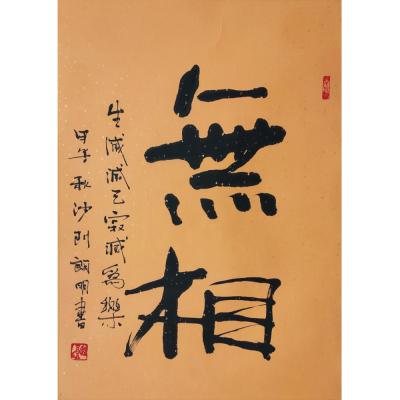 無相
生滅滅已寂滅為樂
甲午秋沙門顗明書